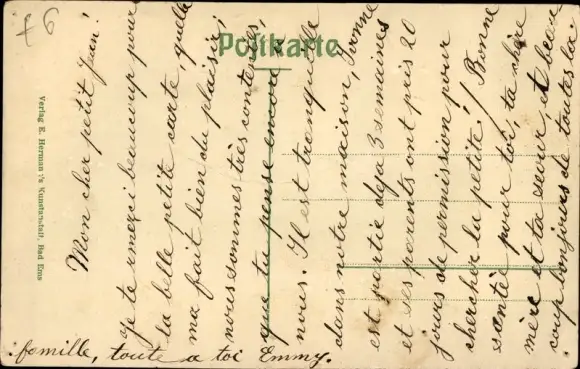 76
Postkarte
Verlag E. Hermann's Kunstanstalt, Bad Ems
Mon cher petit Jean!
Je te remerci beaucoup pour
la belle petite carte, quelle
ma fait bien du plaisir;
nous sommes très contentes,
que tu pense encore a
nous. Il est tranquille
dans notre maison, Yvonne
est partie déja 3 semaines
et ses parents ont pris 20
jours de permission pour
chercher la petite! Bonne
santé pour toi, ta chère
mère et ta sœur et beau
coup bonjours de toute la
famille, toute a toi Emmy.